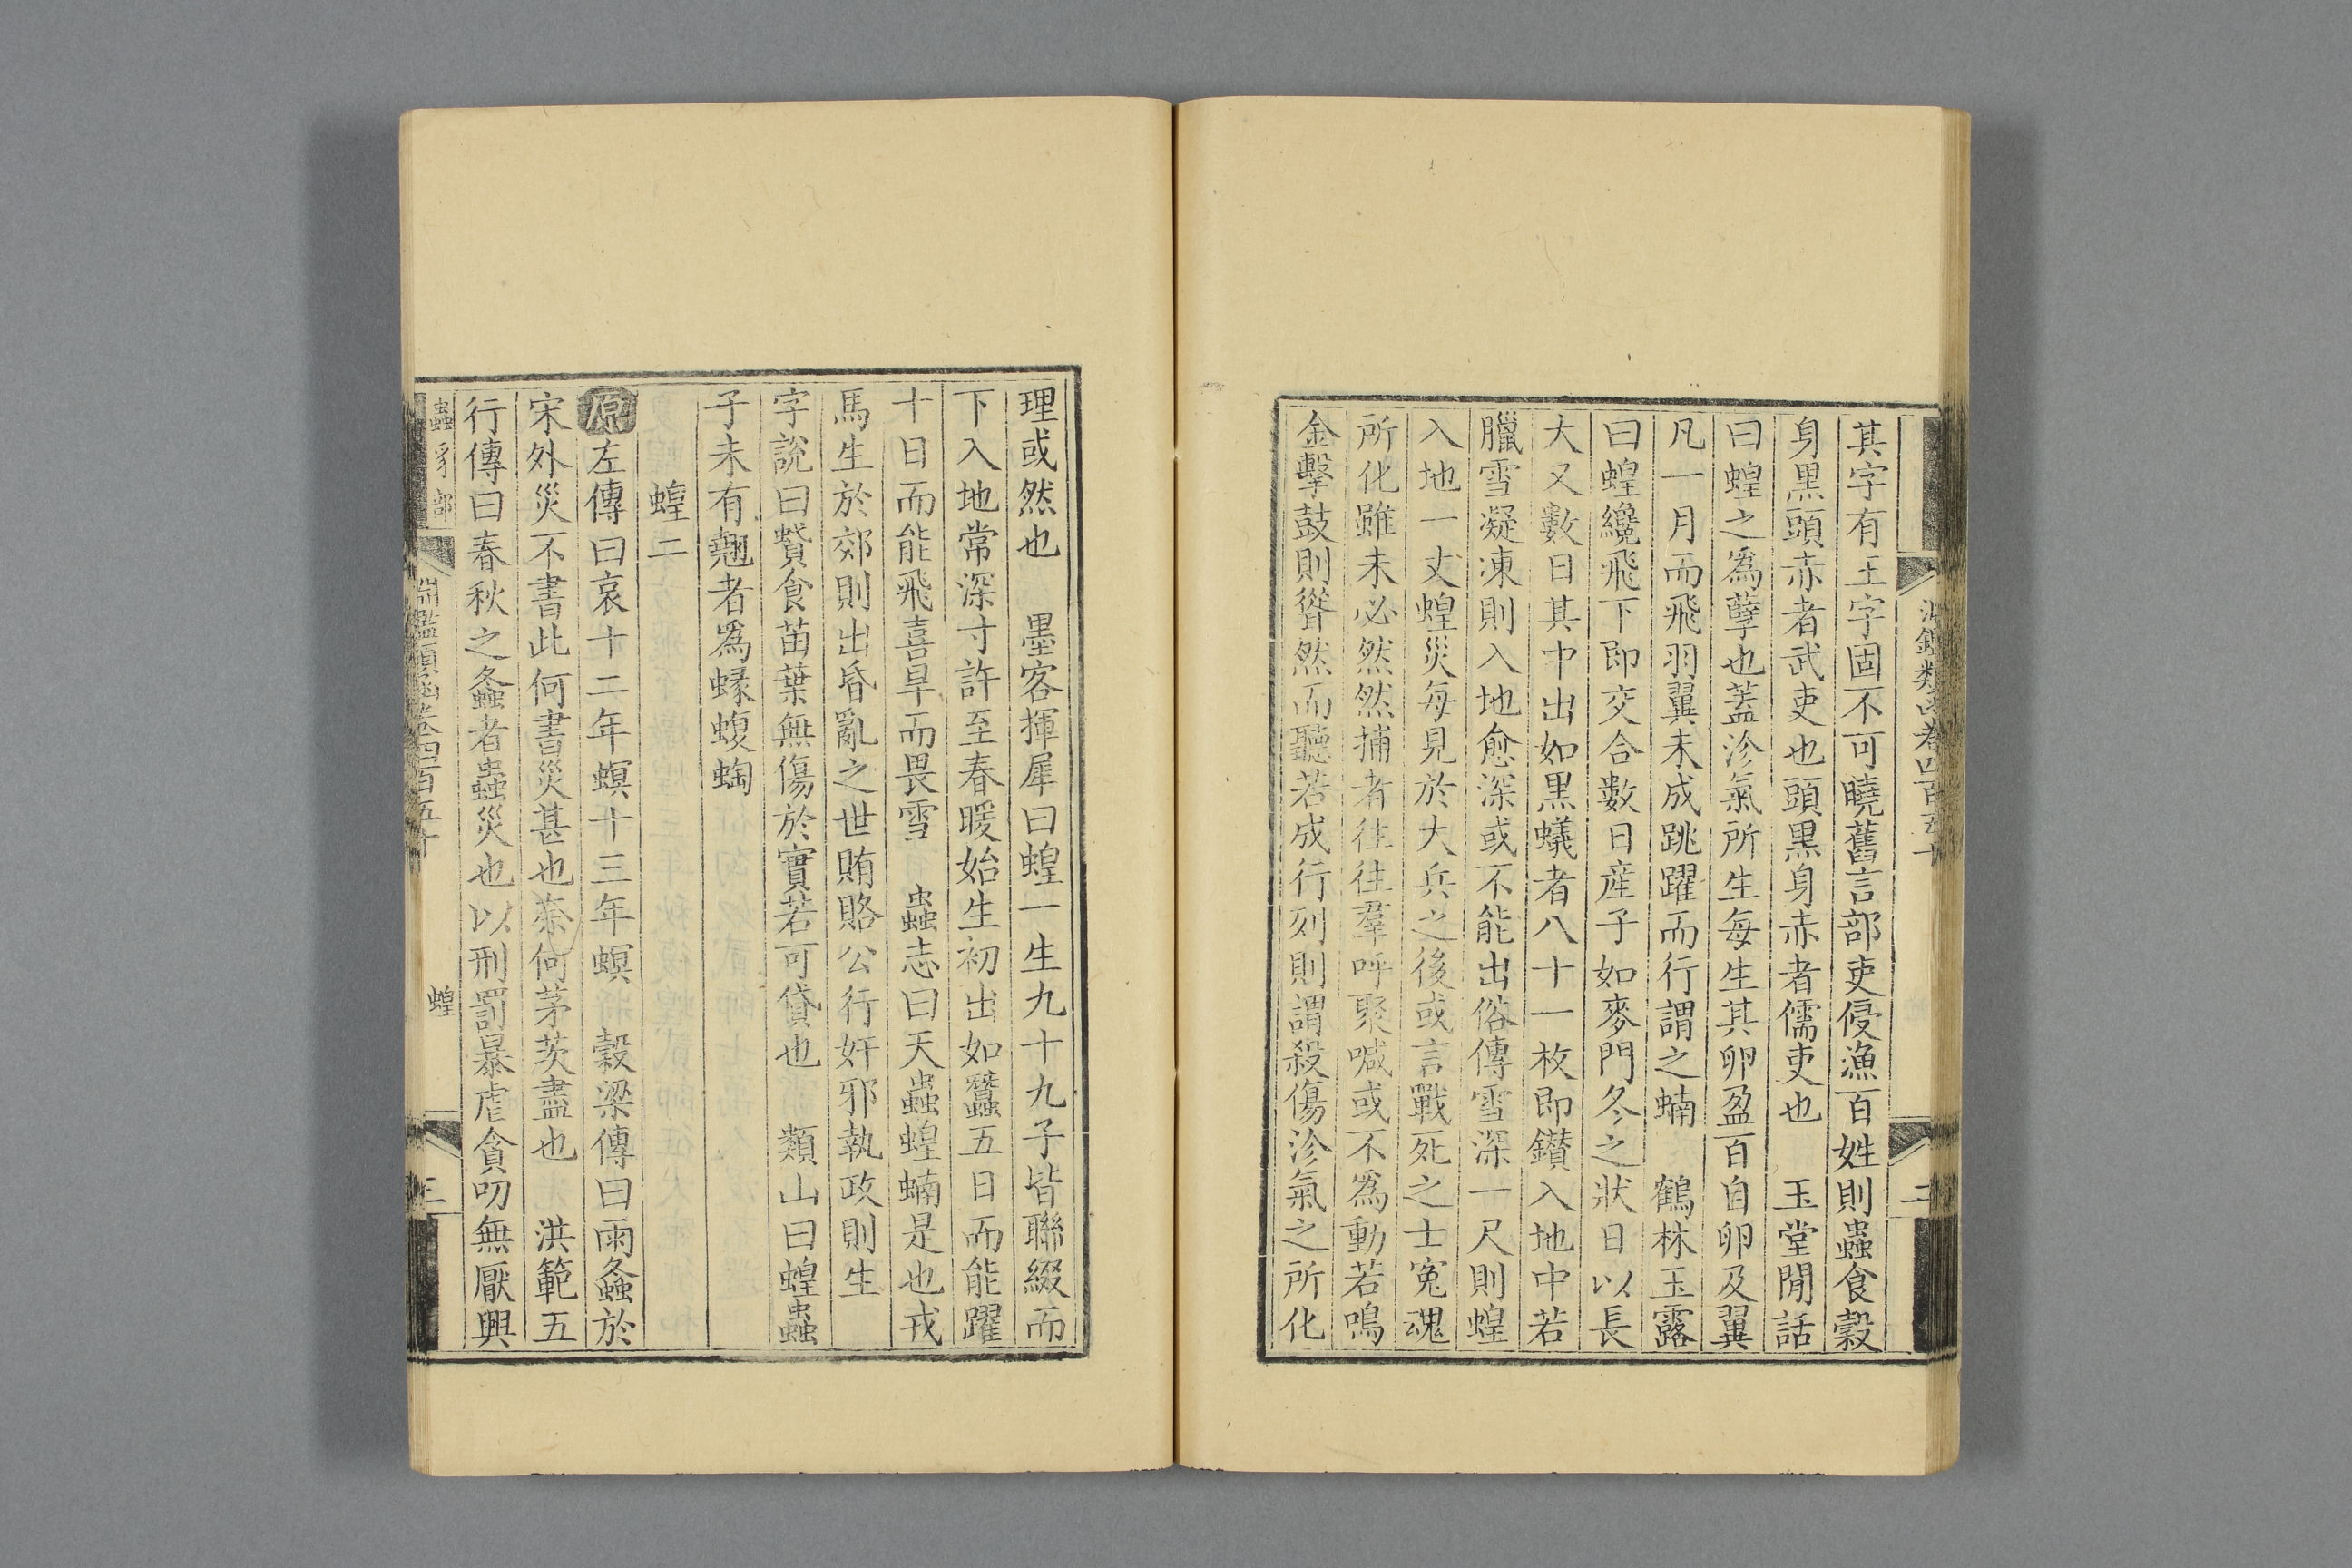 其字有王字固不可曉舊言部吏侵漁百姓則蟲食穀
身黒頭赤者武吏也頭黒身赤者儒吏也 玉堂閒話
曰蝗之為孽也蓋沴氣所生每生其卵盈百自卵及翼
凡一月而飛羽翼未成跳躍而行謂之蝻 鶴林玉露
曰蝗纔飛下即交合數日産子如麥門冬之狀日以長
大又數日其中出如黒蟻者八十一枚即鑚入地中若
臘雪凝凍則入地愈深或不能出俗傳雪深一尺則蝗
入地一丈蝗災每見於大兵之後或言戰死之士寃魂
所化雖未必然然捕者往往羣呼聚喊或不為動若鳴
金擊鼓則聳然而聽若成行列則謂殺傷沴氣之所化
理或然也 墨客揮犀曰蝗一生九十九子皆聯綴而
下入地常深寸許至春暖始生初出如蠶五日而能躍
十日而能飛喜旱而畏雪 蟲志曰天蟲蝗蝻是也戎
馬生於郊則出昏亂之世賄賂公行奸邪執政則生
字説曰蟘食苗葉無傷於實若可貸也 類山曰蝗蟲
子未有翅者為蝝蝮蜪
蝗二
原左傳曰哀十二年螟十三年螟 穀梁傳曰雨螽於
宋外災不書此何書災甚也柰何茅茨盡也 洪範五
行傳曰春秋之螽者蟲災也以刑罰暴虐貪叨無厭興
蟲豸部
淵鑑類函卷四百五十
蝗
三